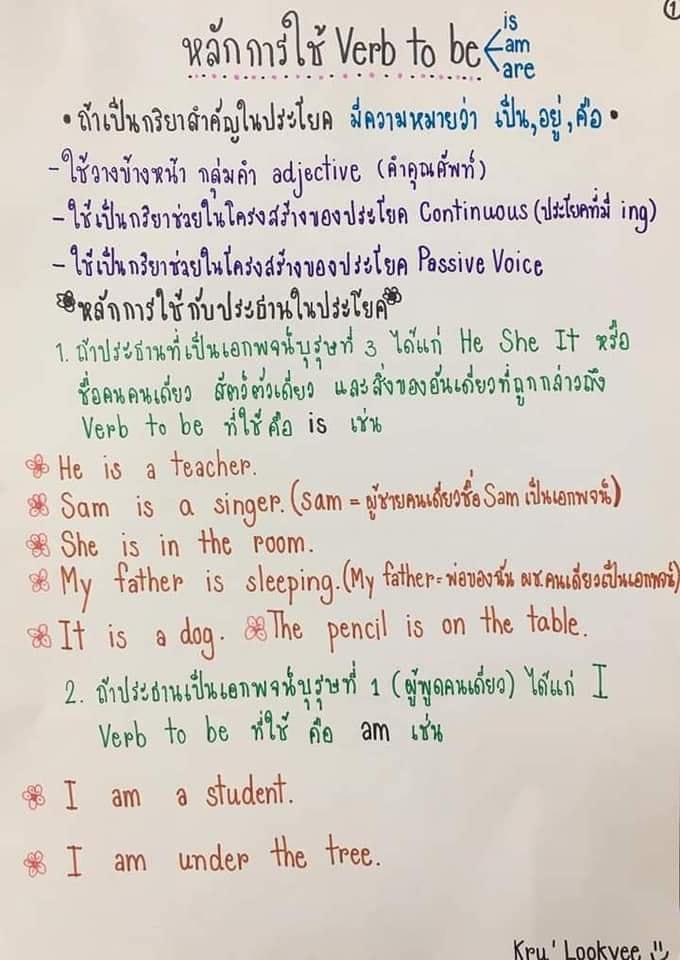 ①
หลักการใช้ Verb to be is am are
• ถ้าเป็นกริยาสำคัญในประโยค มีความหมายว่า เป็น,อยู่,คือ •
- ใช้วางข้างหน้า กลุ่มคำ adjective (คำคุณศัพท์)
- ใช้เป็นกริยาช่วยในโครงสร้างของประโยค Continuous (ประโยคที่มี ing)
- ใช้เป็นกริยาช่วยในโครงสร้างของประโยค Passive Voice
หลักการใช้กับประธานในประโยค
1. ถ้าประธานที่เป็นเอกพจน์บุรุษที่ 3 ได้แก่ He She It หรือ
ชื่อคนคนเดียว สัตว์ตัวเดียว และสิ่งของอันเดียวที่ถูกกล่าวถึง
Verb to be ที่ใช้คือ is เช่น
He is a teacher.
Sam is a singer. (Sam = ผู้ชายคนเดียวชื่อ Sam เป็นเอกพจน์)
She is in the room.
My father is sleeping. (My father = พ่อของฉัน ผช.คนเดียวเป็นเอกพจน์)
It is a dog. The pencil is on the table.
2. ถ้าประธานเป็นเอกพจน์บุรุษที่ 1 (ผู้พูดคนเดียว) ได้แก่ I
Verb to be ที่ใช้ คือ am เช่น
I am a student.
I am under the tree.
Kru' Lookvee